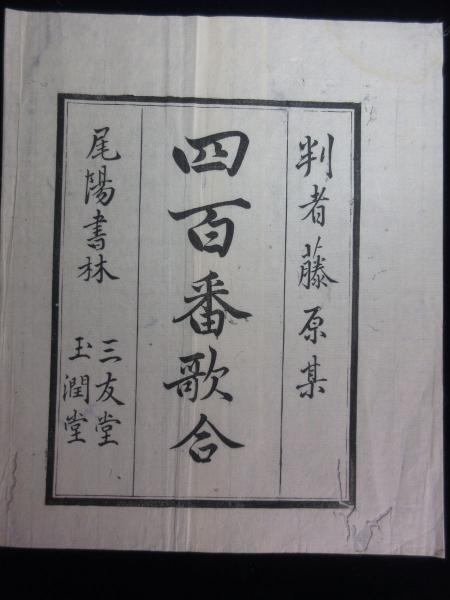 判者藤原某
四百番歌合
尾陽書林
三友堂
玉潤堂